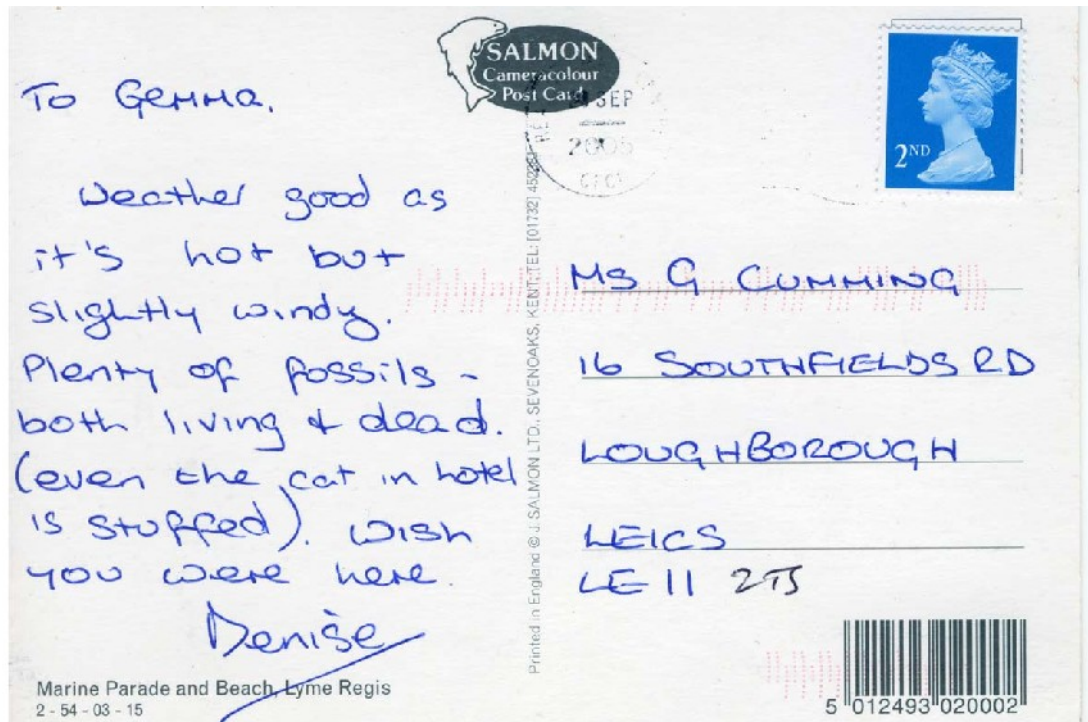 SALMON
Cameracolour
Post Card
SEP
2005
2ND
To Gemma,
Weather good as
it's hot but
slightly windy.
Plenty of fossils -
both living & dead.
(even the cat in hotel
is stuffed). Wish
you were here.
Denise
Marine Parade and Beach, Lyme Regis
2 - 54 - 03 - 15
Printed in England © J. SALMON LTD., SEVENOAKS, KENT; TEL: [01732]
MS G CUMMING
16 SOUTHFIELDS RD
LOUGHBOROUGH
LEICS
LE11 2TS
5 012493 020002